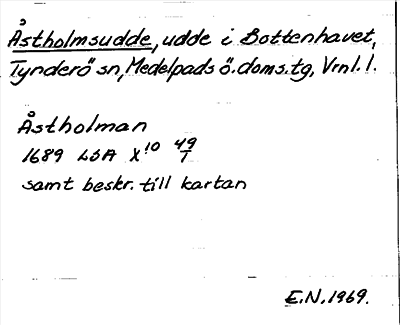 Åstholmsudde, udde i Bottenhavet,
Tynderö sn, Medelpads ö.doms.tg, Vrnl.l.
Åstholman
1689 LSA X:10 49/1
samt beskr. till kartan
E.N. 1969.